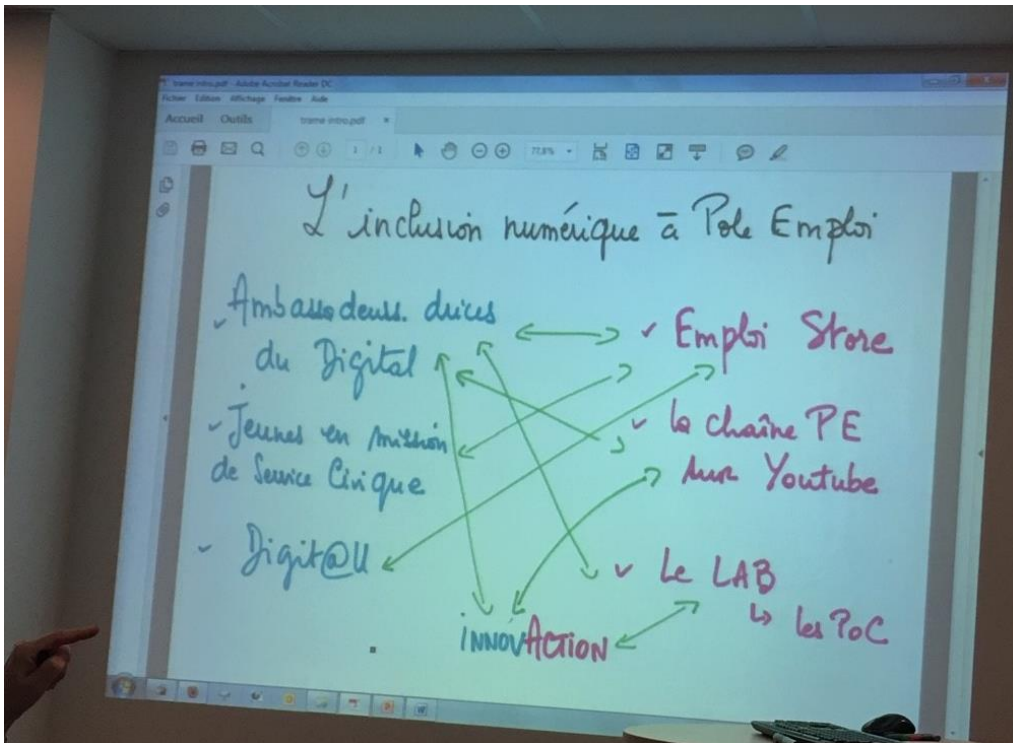 trame intro.pdf - Adobe Acrobat Reader DC
Fichier Edition Affichage Fenêtre Aide
Accueil Outils trame intro.pdf ×
1 / 1 77,8%
L'inclusion numérique à Pole Emploi
✓ Ambassadeurs.drices
du Digital
✓ Jeunes en mission
de Service Civique
✓ Digit@ll
✓ Emploi Store
✓ la chaîne PE
sur Youtube
✓ Le LAB
↳ les PoC
iNNOVACTION